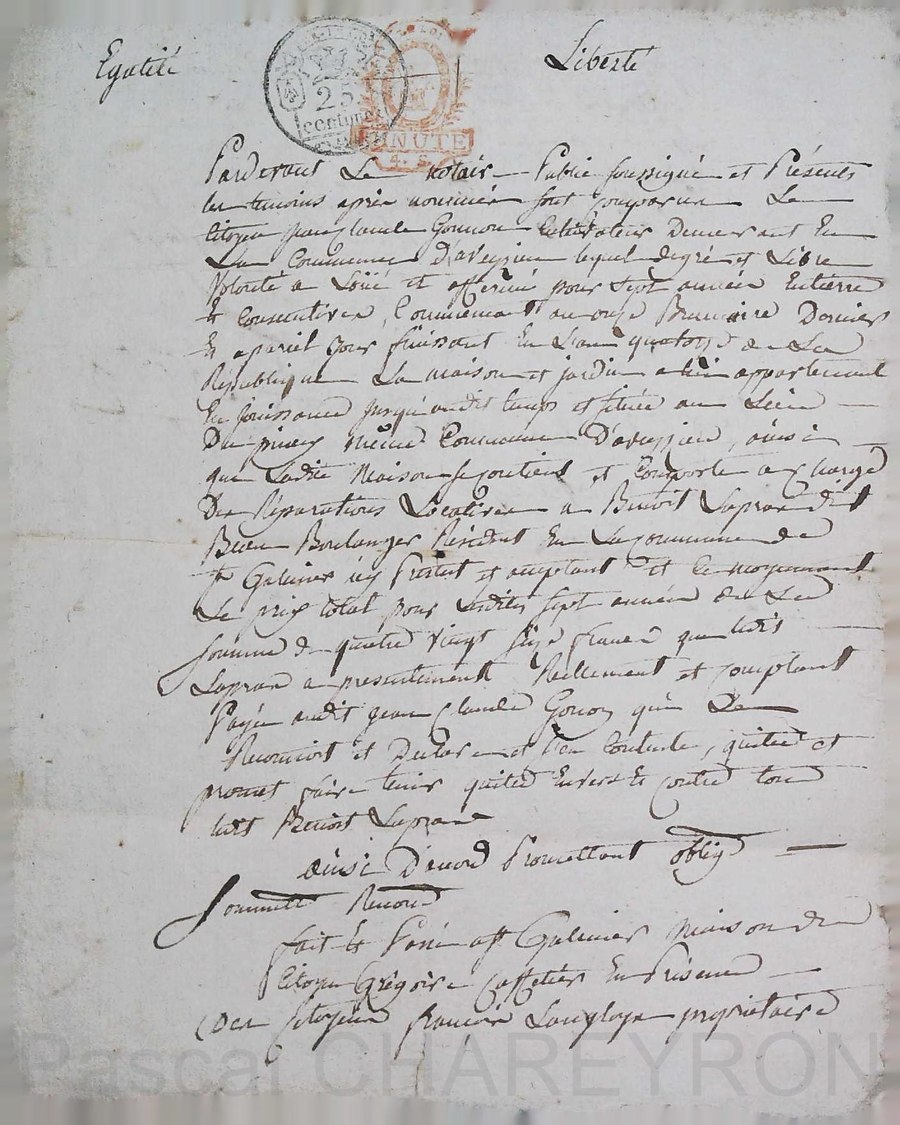 Egalité Liberté
25
centimes
MINUTE
4. S.
Pardevant Le notaire Public soussigné et Présents
les temoins après nommés fut comparu Le
Citoyen jean Claude Gounon Cultivateur Demeurant En
La Commune D'aveyzieu lequel degré et Libre
Volonté a Loüé et affermé pour sept année Entière
Et Consécutives, Commencant au onze Brumaire Dernier
Et apareil jour finissant En L'an quatorze de La
République La maison et jardin a lui appartenant
En jouissance jusqu'audit temps et située au Lieu
Du même Commune D'aveyzieu, ainsi
que Ladite Maison se contient et Comporte a Charge
Des Réparations Locatives a Benoit Laprat dit
Boulanger Résident En La Commune de
st Galmier icy Présent et acceptant et ce moyennant
Le prix total pour lesdites sept année de La
somme de quatre vingt seize francs que ledit
Laprat a presentement Réellement et comptant
Payé audit jean Claude Gonon qui Le
Reconnoit et Declare et s'en Contente, quitte et
promet faire tenir quitte Envers Et contre tous
ledit Benoit Laprat
ainsi D'accord Promettant obligé
Soumettt Renond
fait Et Passé a st Galmier Maison du
Citoyen Grégoire Caffetier En Présence
Des Citoyens francois Langloys proprietaire
Pascal CHAREYRON